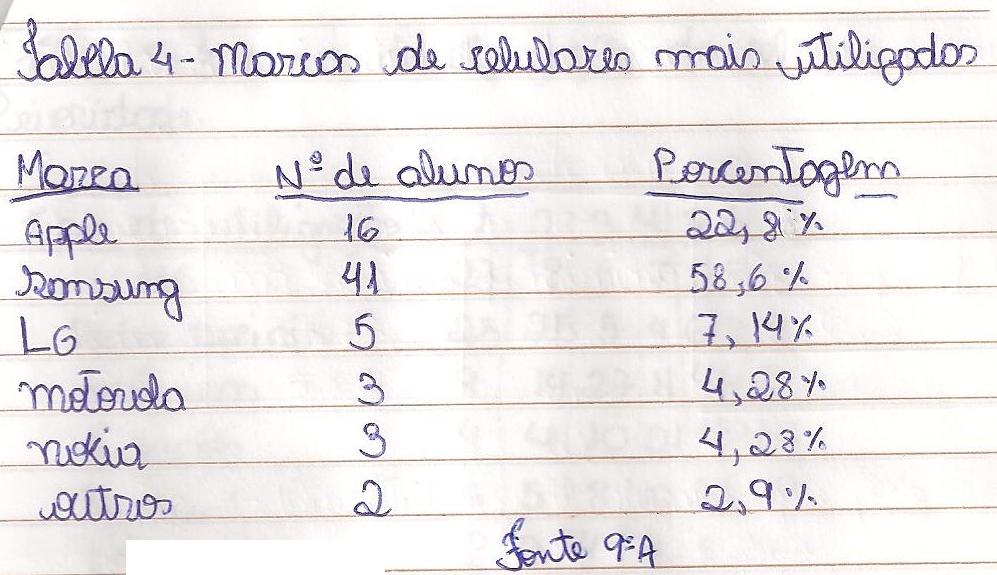 Tabela 4 - Marcas de celulares mais utilizados
Marca Nº de alunos Porcentagem
Apple 16 22,8%
Samsung 41 58,6%
LG 5 7,14%
Motorola 3 4,28%
Nokia 3 4,28%
outros 2 2,9%
Fonte 9ºA